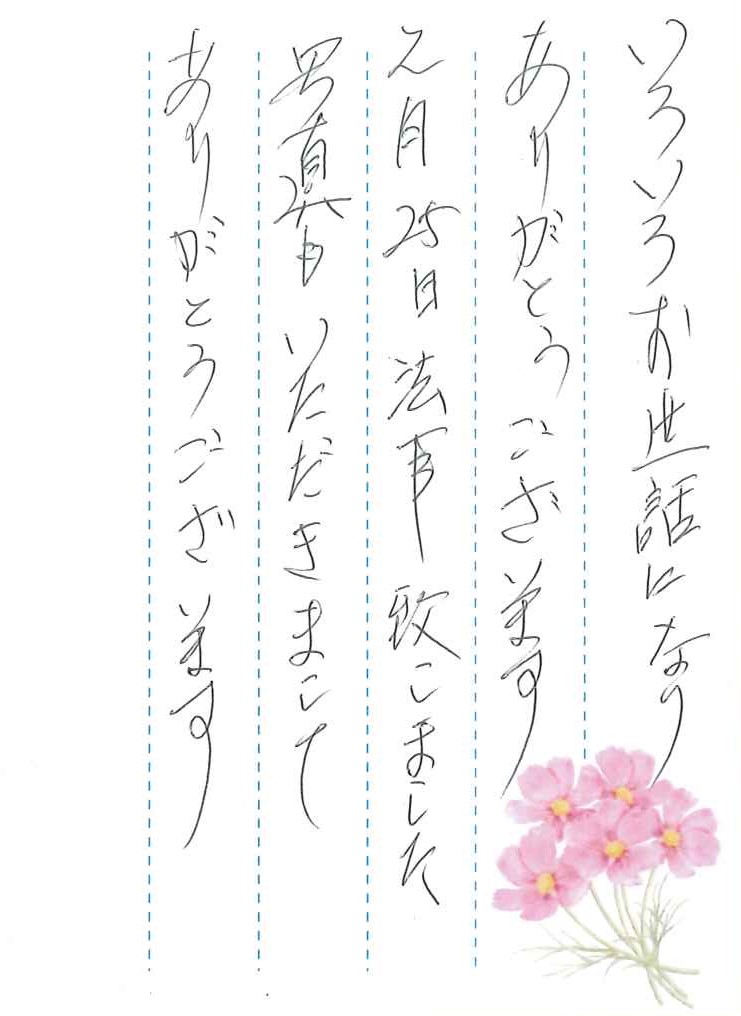 いろいろお世話になり
ありがとうございます
2月25日法事致しました
写真もいただきまして
ありがとうございます